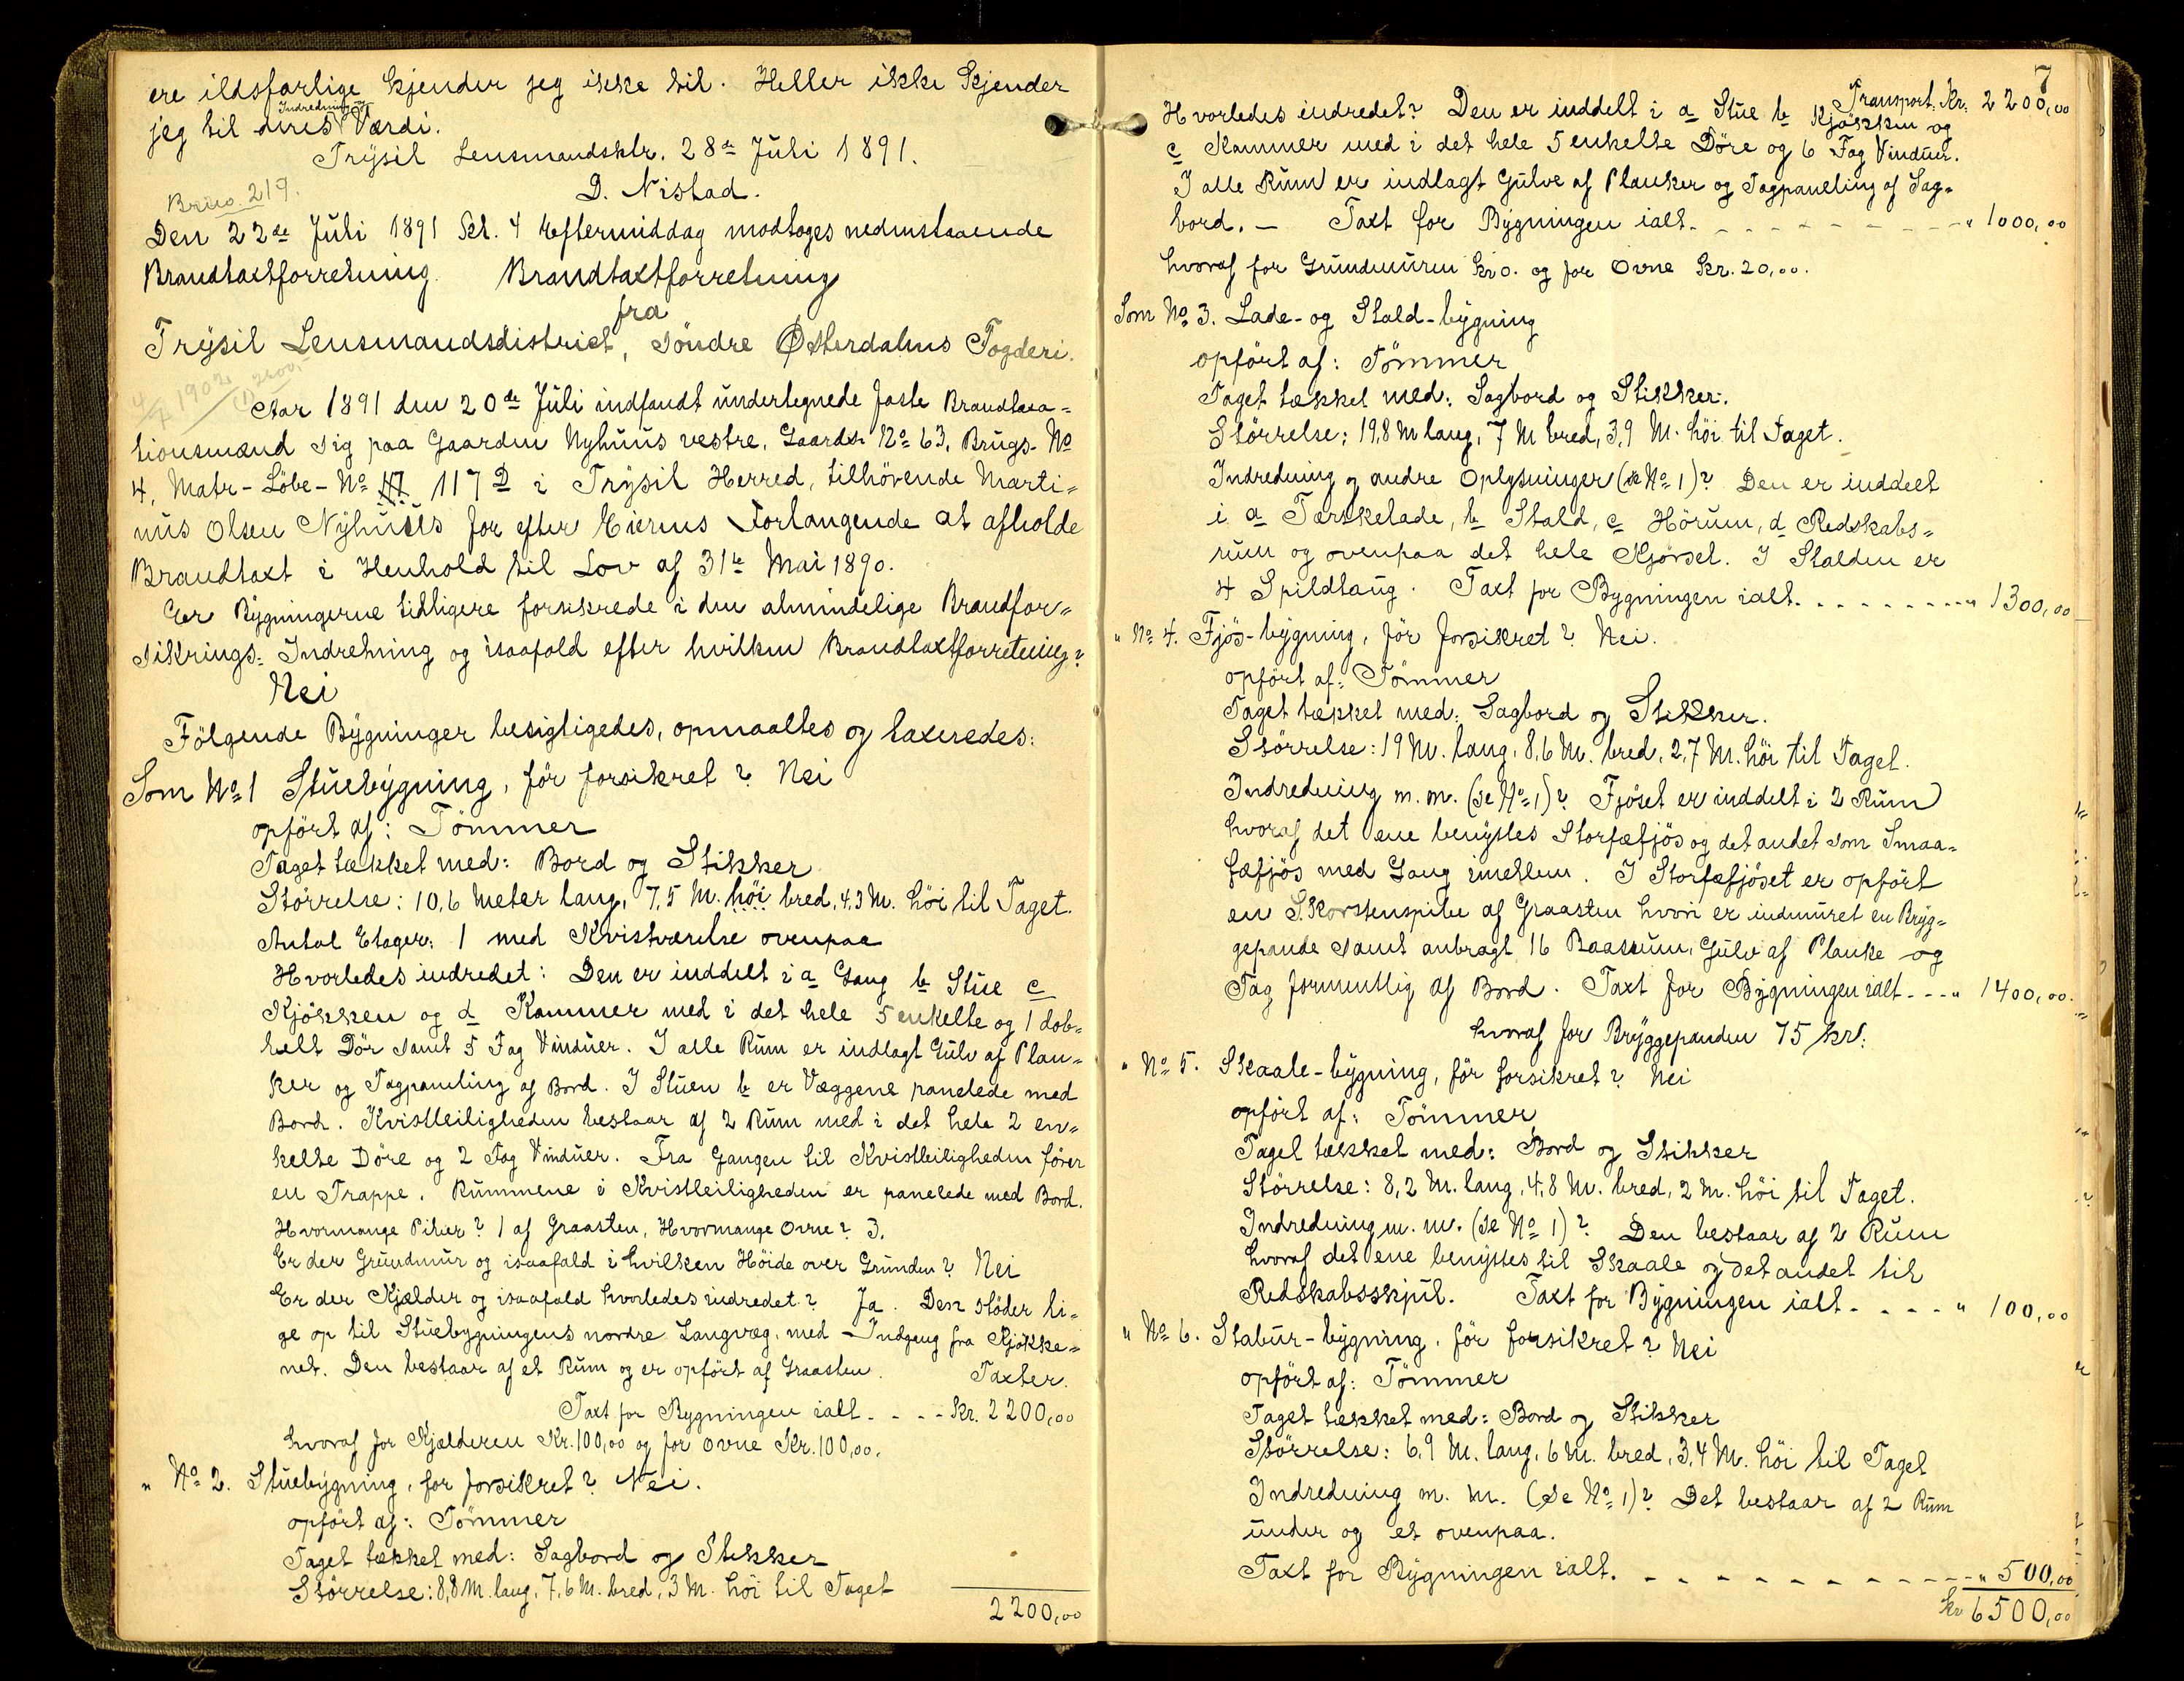 ere ildsfarlige kjender jeg ikke til. Heller ikke kjender
Indredning og
jeg til deres Værdi.
Trysil Lensmandsktr. 28de Juli 1891.
D. Nistad.
Brno. 219.
Den 22de Juli 1891 Kl. 4 Eftermiddag modtoges nedenstaaende
Brandtaxtforretning. Brandtaxtforretning
fra
Trysil Lensmandsdistrict, söndre Østerdalens Fogderi.
4/7 1902
Aar 1891 den 20de Juli indfandt undertegnede faste Brandtaxa-
tionsmænd sig paa Gaarden Nyhuus vestre, Gaards No 63, Brugs-No
4, Matr-Löbe-No 117 117 D i Trysil Herred, tilhörende Marti-
nus Olsen Nyhuus for efter Eierens Forlangende at afholde
Brandtaxt i Henhold til Lov af 31te Mai 1890.
Er Bygningerne tidligere forsikrede i den almindelige Brandfor-
sikrings-Indretning og isaafald efter hvilken Brandtaxtforretning?
Nei
Fölgende Bygninger besigtigedes, opmaaltes og taxeredes:
Som No 1 Stuebygning, för forsikret? Nei
opfört af: Tömmer
Taget tækket med: Bord og Stikker
Störrelse: 10,6 Meter lang, 7,5 M. höi bred, 4,3 M. höi til Taget.
Antal Etager: 1 med Kvistværelse ovenpaa
Hvorledes indredet: Den er inddelt i a Gang b Stue c
Kjökken og d Kammer med i det hele 5 enkelte og 1 dob-
belt Dör samt 5 Fag Vinduer. I alle Rum er indlagt Gulv af Plan-
ker og Tagpaneling af Bord. I Stuen b er Væggene panelede med
Bord. Kvistleiligheden bestaar af 2 Rum med i det hele 2 en-
kelte Döre og 2 Fag Vinduer. Fra Gangen til Kvistleiligheden förer
en Trappe. Rummene i Kvistleiligheden er panelede med Bord.
Hvormange Piber? 1 af Graasten, Hvormange Ovne? 3.
Er der Grundmur og isaafald i hvilken Höide over Grunden? Nei
Er der Kjælder og isaafald hvorledes indredet? Ja. Den stöder li-
ge op til Stuebygningens nordre Langvæg, med Indgang fra Kjökke-
net. Den bestaar af et Rum og er opfört af Graasten. Taxter.
Taxt for Bygningen ialt. - - - Kr. 2200,00
hvoraf for Kjælderen Kr. 100,00 og for Ovne Kr. 100,00.
" No 2. Stuebygning, för forsikret? Nei.
opfört af: Tömmer
Taget tækket med: Sagbord og Stikker
Störrelse: 8,8 M. lang, 7,6 M. bred, 3 M. höi til Taget
2200,00
7
Transport: Kr. 2200,00
Hvorledes indredet? Den er inddelt i a Stue b Kjökken og
c Kammer med i det hele 5 enkelte Döre og 6 Fag Vinduer.
I alle Rum er indlagt Gulve af Planker og Tagpaneling af Sag-
bord. - Taxt for Bygningen ialt. - - - - - - - - " 1000,00
hvoraf for Grundmuren kr 0. og for Ovne Kr. 20,00.
Som No 3. Lade- og Stald-bygning
opfört af: Tömmer
Taget tækket med: Sagbord og Stikker.
Störrelse: 19,8 M lang, 7 M bred, 3,9 M. höi til Taget.
Indredning og andre Oplysninger (se No 1)? Den er inddeet
i a Tærskelade, b Stald, c Hörum, d Redskabs-
rum og ovenpaa det hele Kjörsel. I Stalden er
4 Spildtaug. Taxt for Bygningen ialt. - - - - - - - " 1300,00
" No 4. Fjös-bygning, för forsikret? Nei.
opfört af: Tömmer
Taget tækket med: Sagbord og Stikker.
Störrelse: 19 M. lang, 8,6 M. bred, 2,7 M. höi til Taget.
Indredning m.m. (se No 1)? Fjöset er inddelt i 2 Rum
hvoraf det ene benyttes Storfæfjös og det andet som Smaa-
fæfjös med Gang imellem. I Storfæfjöset er opfört
en Skorstenspibe af Graasten hvori er indmuret en Bryg-
gepande samt anbragt 16 Baaserum, Gulv af Planke og
Tag formentlig af Bord. Taxt for Bygningen ialt - - - " 1400,00.
hvoraf for Bryggepanden 75 kr.
" No 5. Skaale-bygning, för forsikret? Nei
opfört af: Tömmer
Taget tækket med: Bord og Stikker
Störrelse: 8,2 M. lang, 4,8 M. bred, 2 M. höi til Taget.
Indredning m. m. (se No 1)? Den bestaar af 2 Rum
hvoraf det ene benyttes til Skaale og det andet til
Redskabsskjul. Taxt for Bygningen ialt - - - - " 100,00
" No 6. Stabur-bygning, för forsikret? Nei
opfört af: Tömmer
Taget tækket med: Bord og Stikker
Störrelse: 6,9 M. lang, 6 M. bred, 3,4 M. höi til Taget
Indredning m. m. (se No 1)? Det bestaar af 2 Rum
under og et ovenpaa.
Taxt for Bygningen ialt. - - - - - - - - - - - " 500,00
kr 6500,00